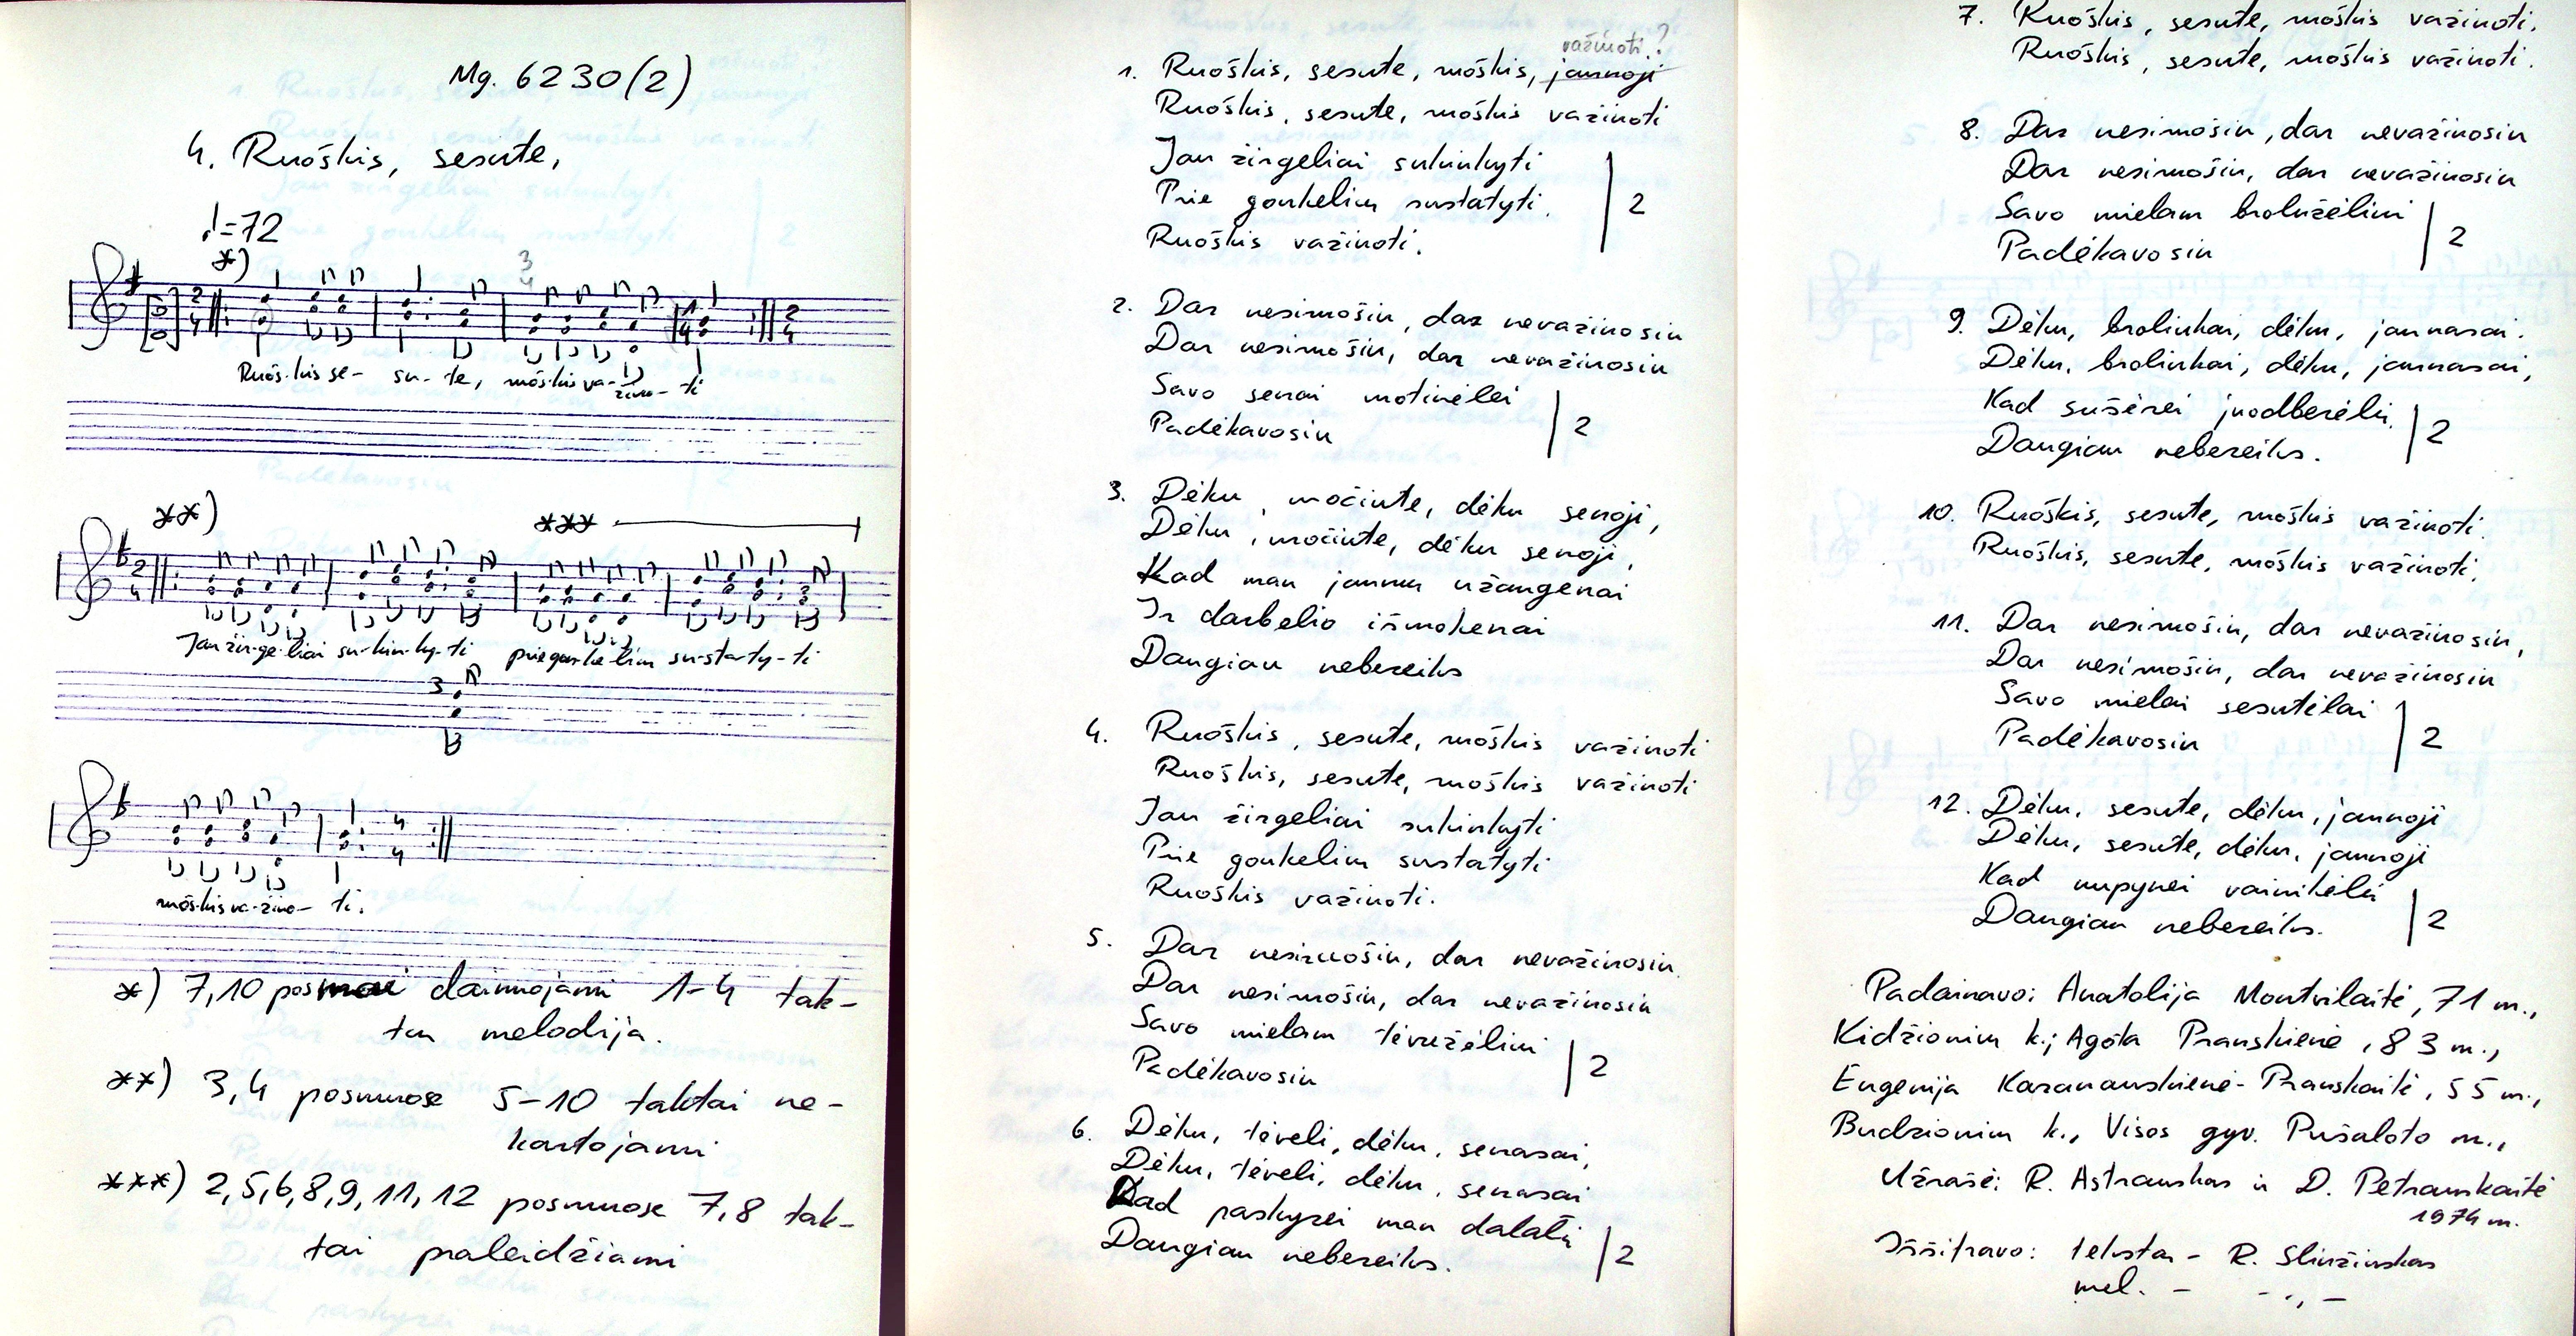 Mg. 6230(2)
4. Ruoškis, sesute,
♩=72
*)
3
4
Ruoš-kis se- su- te, ruoš-kis va-žiuo- ti
**)
***
Jau žir-ge-liai su-kin-ky-ti prie gon-ke-lių su-sta-ty-ti
3
ruoš-kis va-žiuo- ti.
*) 7,10 posmai dainuojami 1-4 tak-
tų melodija.
**) 3,4 posmuose 5-10 taktai ne-
kartojami
***) 2,5,6,8,9,11,12 posmuose 7,8 tak-
tai praleidžiami
važiuoti?
1. Ruoškis, sesute, ruoškis, jaunoji
Ruoškis, sesute, ruoškis važiuoti
Jau žirgeliai sukinkyti
Prie gonkelių sustatyti. 2
Ruoškis važiuoti.
2. Dar nesiruošiu, dar nevažiuosiu
Dar nesiruošiu, dar nevažiuosiu
Savo senai motinėlei
Padėkavosiu 2
3. Dėku, močiute, dėku senoji,
Dėku, močiute, dėku senoji,
Kad man jauną užaugenai
Ir darbelio išmokenai
Daugiau nebereiks
4. Ruoškis, sesute, ruoškis važiuoti
Ruoškis, sesute, ruoškis važiuoti
Jau žirgeliai sukinkyti
Prie gonkelių sustatyti
Ruoškis važiuoti.
5. Dar nesiruošiu, dar nevažiuosiu.
Dar nesiruošiu, dar nevažiuosiu
Savo mielam tėvužėliui
Padėkavosiu 2
6. Dėku, tėveli, dėku, senasai,
Dėku, tėveli, dėku, senasai
Kad paskyrei man dalalį
Daugiau nebereiks. 2
7. Ruoškis, sesute, ruoškis važiuoti.
Ruoškis, sesute, ruoškis važiuoti.
8. Dar nesiruošiu, dar nevažiuosiu
Dar nesiruošiu, dar nevažiuosiu
Savo mielam broliužėliui
Padėkavosiu 2
9. Dėku, broliukai, dėku, jaunasai.
Dėku, broliukai, dėku, jaunasai,
Kad sušėrei juodberėlį.
Daugiau nebereiks. 2
10. Ruoškis, sesute, ruoškis važiuoti.
Ruoškis, sesute, ruoškis važiuoti.
11. Dar nesiruošiu, dar nevažiuosiu,
Dar nesiruošiu, dar nevažiuosiu
Savo mielai sesutėlai
Padėkavosiu 2
12. Dėku, sesute, dėku, jaunoji
Dėku, sesute, dėku, jaunoji
Kad nupynei vainikėlį
Daugiau nebereiks. 2
Padainavo: Anatolija Montvilaitė, 71 m.,
Kidžionių k.; Agota Pranskienė, 83 m.,
Eugenija Karanauskienė-Pranskaitė, 55 m.,
Budzionių k., Visos gyv. Pušaloto m.,
Užrašė: R. Astrauskas ir D. Petrauskaitė
1974 m.
Iššifravo: tekstą - R. Sližinskas
mel. - -„-